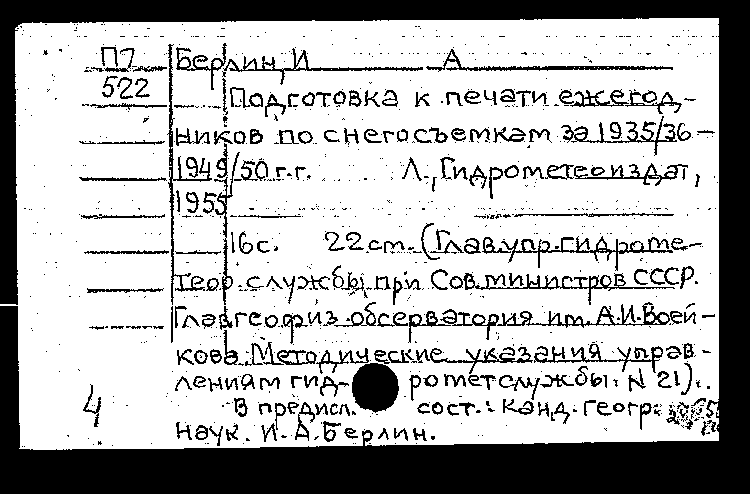 П7 Берлин, И А
522 Подготовка к печати ежегод-
ников по снегосъемкам за 1935/36-
1949/50 г.г. Л., Гидрометеоиздат,
1955
16с. 22 cm. (Глав.упр.гидроме-
теор.службы при Сов.министров СССР.
Глав.геофиз.обсерватория им. А.И.Воей-
кова. Методические указания управ-
лениям гид- рометслужбы. N 21).
4 В предисл. сост.: канд. геогр.
наук. И.А.Берлин.